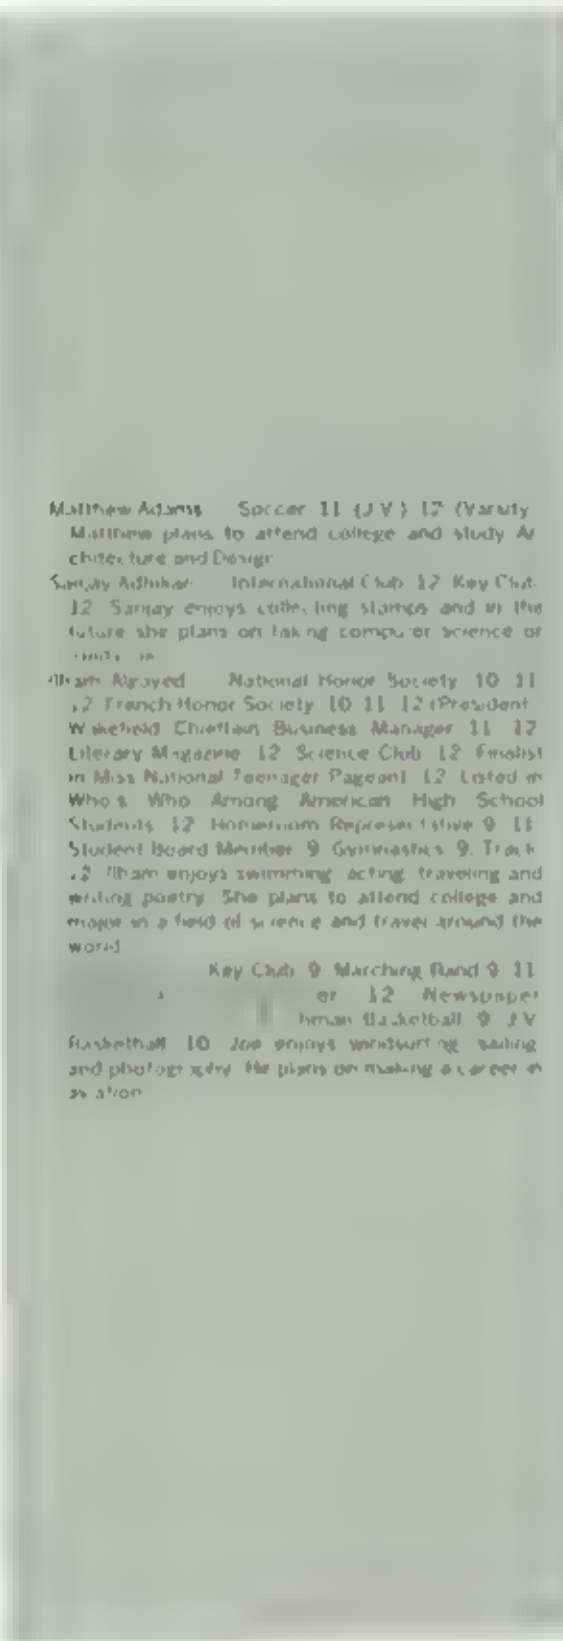 Matthew Adams Soccer 11 (J.V.) 12 (Varsity
Matthew plans to attend college and study Ar
chitecture and Design
Sanjay International Club 12 Key Club
12 Sanjay enjoys collecting stamps and in the
future she plans on taking computer science or
National Honor Society 10 11
12 French Honor Society 10 11 12 (President
Wakefield Chieftain Business Manager 11 12
Literary Magazine 12 Science Club 12 Finalist
in Miss National Teenager Pageant 12 Listed in
Who's Who Among American High School
Students 12 Homeroom Representative 9 11
Student Board Member 9 Gymnastics 9. Track
12 Ilham enjoys swimming acting, traveling and
writing poetry She plans to attend college and
major in a field of science and travel around the
world
Key Club 9 Marching Band 9 11
er 12 Newspaper
hman Basketball 9 JV
Basketball 10 Joe enjoys windsurfing sailing
and photography He plans on making a career in
aviation